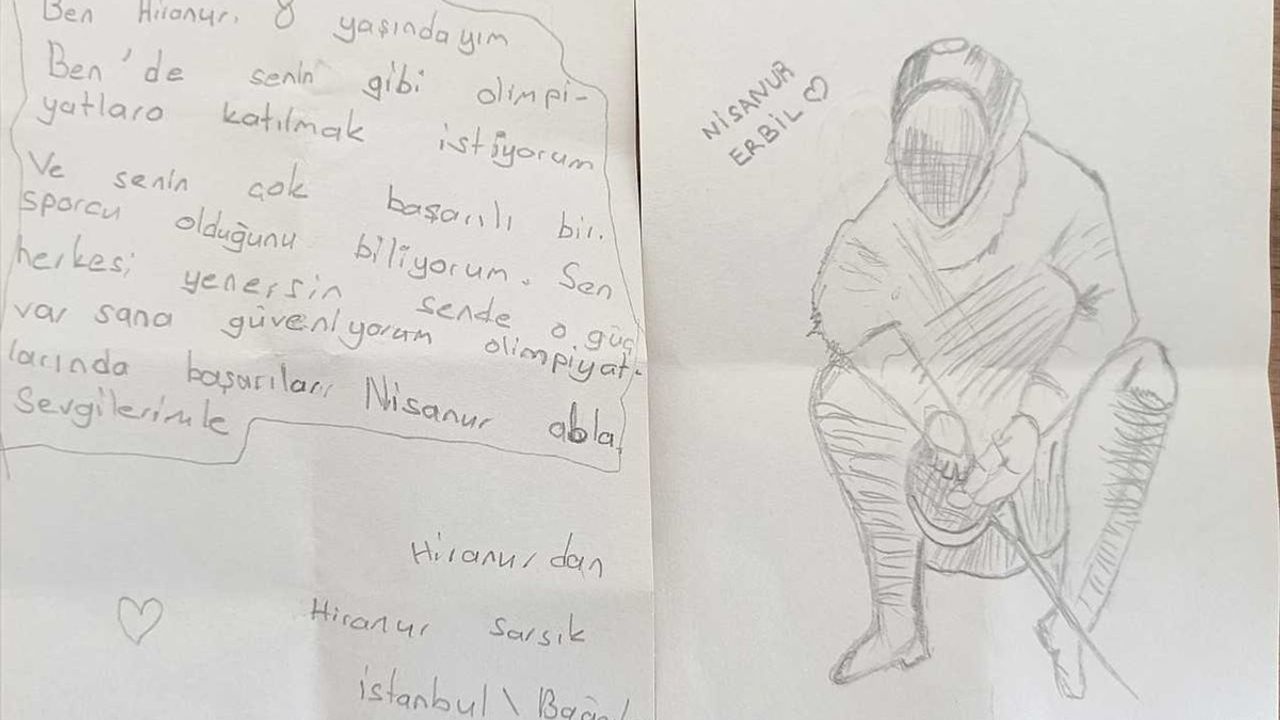 Ben Hiranur. 8 yaşındayım
Ben'de senin gibi olimpi-
yatlara katılmak istiyorum
Ve senin çok başarılı bir.
sporcu olduğunu biliyorum. Sen
herkesi yenersin sende o güç
var sana güveniyorum olimpiyat-
larında başarılar, Nisanur abla,
Sevgilerimle
Hiranur dan
Hiranur Sarsık
istanbul \
NİSANUR
ERBİL